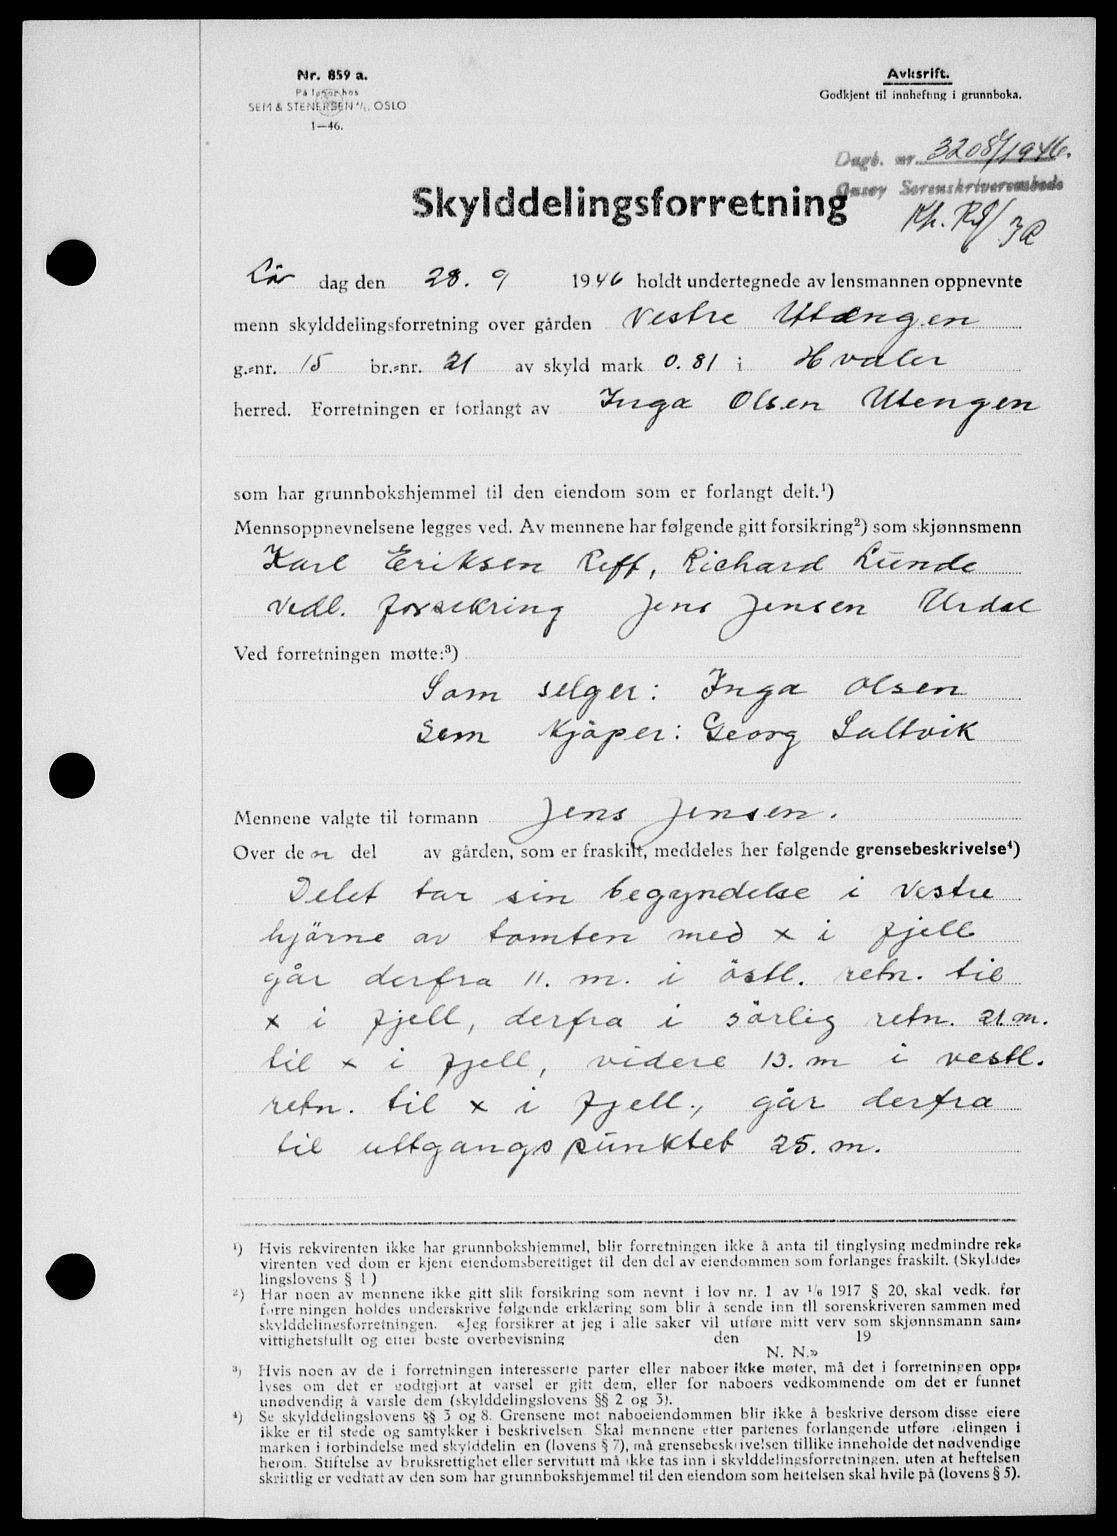 Nr. 859 a.
På lager hos
SEM & STENERSEN A/S, OSLO
1—46.
Avksrift.
Godkjent til innhefting i grunnboka.
Dagb. nr. 3208/1946.
Onsøy Sorenskriverembede
Skylddelingsforretning
Lör dag den 28. 9 1946 holdt undertegnede av lensmannen oppnevnte
menn skylddelingsforretning over gården Vestre Utængen
g.-nr. 15 br.-nr. 21 av skyld mark 0.81 i Hvaler
herred. Forretningen er forlangt av Inga Olsen Utengen
som har grunnbokshjemmel til den eiendom som er forlangt delt.¹)
Mennsoppnevnelsene legges ved. Av mennene har følgende gitt forsikring²) som skjønnsmenn
Karl Eriksen Reff, Richard Lunde
vedl. forsekring Jens Jensen Urdal
Ved forretningen møtte:³)
Som selger: Inga Olsen
Som Kjöper: Georg Saltvik
Mennene valgte til formann Jens Jensen.
Over den del av gården, som er fraskilt, meddeles her følgende grensebeskrivelse⁴)
Delet tar sin begyndelse i vestre
hjörne av tomten med x i fjell
går derfra 11. m. i östl. retn. til
x i fjell, derfra i sörlig retn. 21. m.
til x i fjell, videre 13. m i vestl.
retn. til x i fjell, går derfra
til uttgangspunktet 25. m.
¹) Hvis rekvirenten ikke har grunnbokshjemmel, blir forretningen ikke å anta til tinglysing medmindre rek-
virenten ved dom er kjent eiendomsberettiget til den del av eiendommen som forlanges fraskilt. (Skyldde-
lingslovens § 1)
²) Har noen av mennene ikke gitt slik forsikring som nevnt i lov nr. 1 av 1/6 1917 § 20, skal vedk. før
forretningen holdes underskrive følgende erklæring som blir å sende inn til sorenskriveren sammen med
skylddelingsforretningen. «Jeg forsikrer at jeg i alle saker vil utføre mitt verv som skjønnsmann sam-
vittighetsfullt og etter beste overbevisning den 19
N. N.»
³) Hvis noen av de i forretningen interesserte parter eller naboer ikke møter, må det i forretningen opp-
lyses om det er godtgjort at varsel er gitt dem, eller for naboers vedkommende om det er funnet
unødvendig å varsle dem (skylddelingslovens §§ 2 og 3).
⁴) Se skylddelingslovens §§ 3 og 8. Grensene mot naboeiendommen blir ikke å beskrive dersom disse eiere
ikke er til stede og samtykker i beskrivelsen. Skal mennene etter partenes forlangende utføre delingen i
marken i forbindelse med skylddelingen (lovens § 7), må grensebeskrivelsen tillike inneholde det nødvendige
herom. Stiftelse av bruksrettighet eller servitutt må ikke tas inn i skylddelingsforretningen, uten at heftelsen
skriftlig er vedtatt av den som har grunnbokshjemmel til den eiendom som heftelsen skal hvile på (lovens § 5).